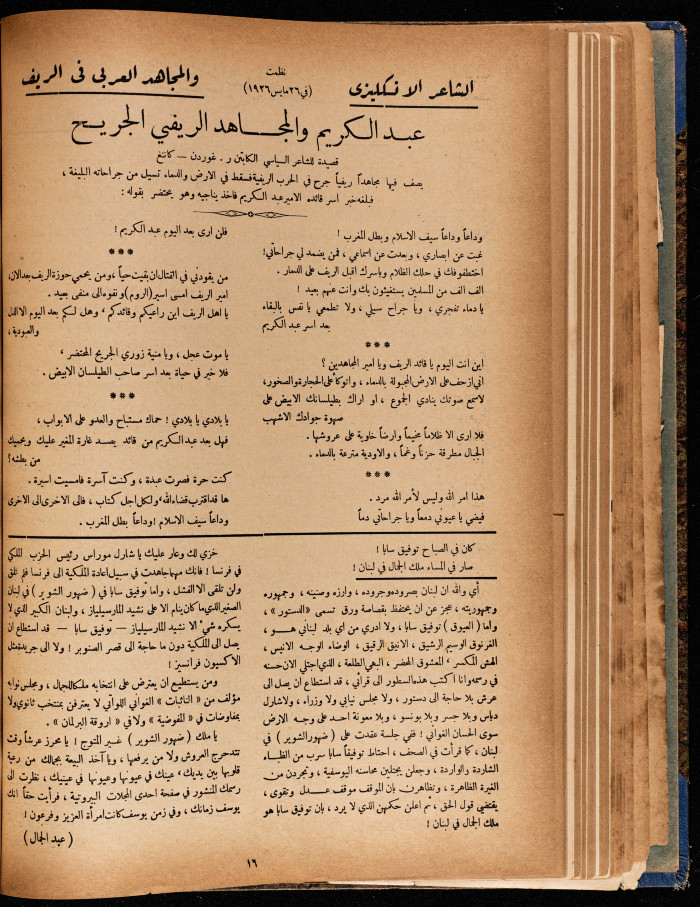 الشاعر الانكليزي
نظمت
(في ٢٦ مايس ١٩٢٦)
والمجاهد العربي في الريف
عبد الكريم والمجاهد الريفي الجريح
قصيدة للشاعر السياسي الكابتن ر . غوردن – كاننغ
يصف فيها مجاهداً ريفياً جرح في الحرب الريفية فسقط في الارض والدماء تسيل من جراحاته البليغة ،
فبلغه خبر اسر قائده الامير عبد الكريم فاخذ يناجيه وهو يحتضر بقوله :
وداعاً وداعاً سيف الاسلام وبطل المغرب !
غبت عن ابصاري ، وبعدت عن اسماعي ، فمن يضمد لي جراحاتي !
اختطفوك في حلك الظلام وباسرك اقبل الريف على الدمار .
الف الف من المسلمين يستغيثون بك وانت عنهم بعيد !
يا دماء تفجري ، ويا جراح سيلي ، ولا تطمعي يا نفس بالبقاء
بعد اسر عبد الكريم
***
اين انت اليوم يا قائد الريف ويا امير المجاهدين ؟
اني ازحف على الارض المجبولة بالدماء ، واتوكأ على الحجارة والصخور ،
لاسمع صوتك ينادي الجموع ، او اراك بطيلسانك الابيض على
صهوة جوادك الاشهب
فلا ارى الا ظلاماً مخيماً وارضاً خاوية على عروشها .
الجبال مطرقة حزناً وغماً ، والاودية مترعة بالدماء .
***
هذا امر الله وليس لأمر الله مرد .
فيضي يا عيوني دمعاً ويا جراحاتي دماً
فلن ارى بعد اليوم عبد الكريم !
***
من يقودني في القتال ان بقيت حياً ، ومن يحمي حوزة الريف بعد الان ،
امير الريف امسى اسير (الروم) ونفوه الى منفى بعيد .
يا اهل الريف اين راعيكم وقائدكم ، وهل لكم بعد اليوم الا الذل
والعبودية ،
يا موت عجل ، ويا منية زوري الجريح المحتضر ،
فلا خير في حياة بعد اسر صاحب الطيلسان الابيض .
***
يا بلادي يا بلادي ! حماك مستباح والعدو على الابواب ،
فهل بعد عبد الكريم من قائد يصد غارة المغير عليك ويحميك
من بطشه ؟
كنت حرة فصرت عبدة ، وكنت آسرة فامسيت اسيرة .
ها قد اقترب قضاء الله ولكل اجل كتاب ، فالى الاخرى الى الاخرى
وداعاً سيف الاسلام ! وداعاً بطل المغرب .
كان في الصباح توفيق سابا !
صار في المساء ملك الجمال في لبنان !
أي والله ان لبنان بصروده وجروده ، وارزه وصنينه ، وجمهوره
وجمهوريته ، عجز عن ان يحتفظ بقصاصة ورق تسمى «الدستور» ،
واما ( العيوق ) توفيق سابا ، ولا ادري من اي بلد لبناني هــو ،
الغرنوق الوسيم الرشيق ، الانيق الرقيق ، الوضاء الوجه الانيس ،
الهش المكسر ، المعشوق المحضر ، البهي الطلعة ، الذي اجتلي الان حسنه
في رسمه وانا اكتب هذه السطور الى قرائي ، قد استطاع ان يصل الى
عرش بلا حاجة الى دستور ، ولا مجلس نيابي ولا وزراء ، ولا شارل
دباس وبلا جسر وبلا بونسو ، وبلا معونة احد على وجــه الارض
سوى الحسان الغواني ! ففي جلسة عقدت على ( ضهور الشوير ) في
لبنان ، كما قرأت في الصحف ، احتاط توفيقاً سابا سرب من الظبــاء
الشاردة والواردة ، وجعلن يجتلين محاسنه اليوسفية ، وتجردن من
الغيرة الظاهرة ، وتظاهرن بان الموقف موقف عــدل وتقوى ،
يقتضي قول الحق ، ثم اعلن حكمهن الذي لا يرد ، بان توفيق سابا هو
ملك الجمال في لبنان !
خزي لك وعار عليك يا شارل موراس رئيس الحزب الملكي
في فرنسا ! فانك مهما جاهدت في سبيل اعادة الملكية الى فرنسا فلم تلق
ولن تلقى الا الفشل ، واما توفيق سابا في ( ضهور الشوير ) في لبنان
الصغير الذي ما كان ينام الا على نشيد المارسيلياز ، ولبنان الكبير الذي لا
يسكره شيء الا نشيد المارسيلياز – توفيق سابا – قد استطاع ان
يصل الى الملكية دون ما حاجة الى قصر الصنوبر ! ولا الى جريدة مثل
الاكسيون فرانسيز !
ومن يستطيع ان يعترض على انتخابه ملكا للجمال ، ومجلس نوابه
مؤلف من «النائبات» الغواني اللواتي لا يعترفن بمنتخب ثانوي ولا
بمفاوضات في «المفوضية» ولا في «اروقة البرلمان» .
يا ملك ( ضهور الشوير ) غــير المتوج ! يا محرز عرشاً وقت
تتدحرج العروش ولا من يرفعها ، ويا آخذ البيعة بجمالك من رعية
قلوبها بين يديك ، عينك في عيونها وعيونها في عينيك ، نظرت الى
رسمك المنشور في صفحة احدى المجلات البيروتية ، فرأيت حقاً انك
يوسف زمانك ، وفي زمن يوسف كانت امرأة العزيز وفرعون !
( عبد الجمال )
١٦